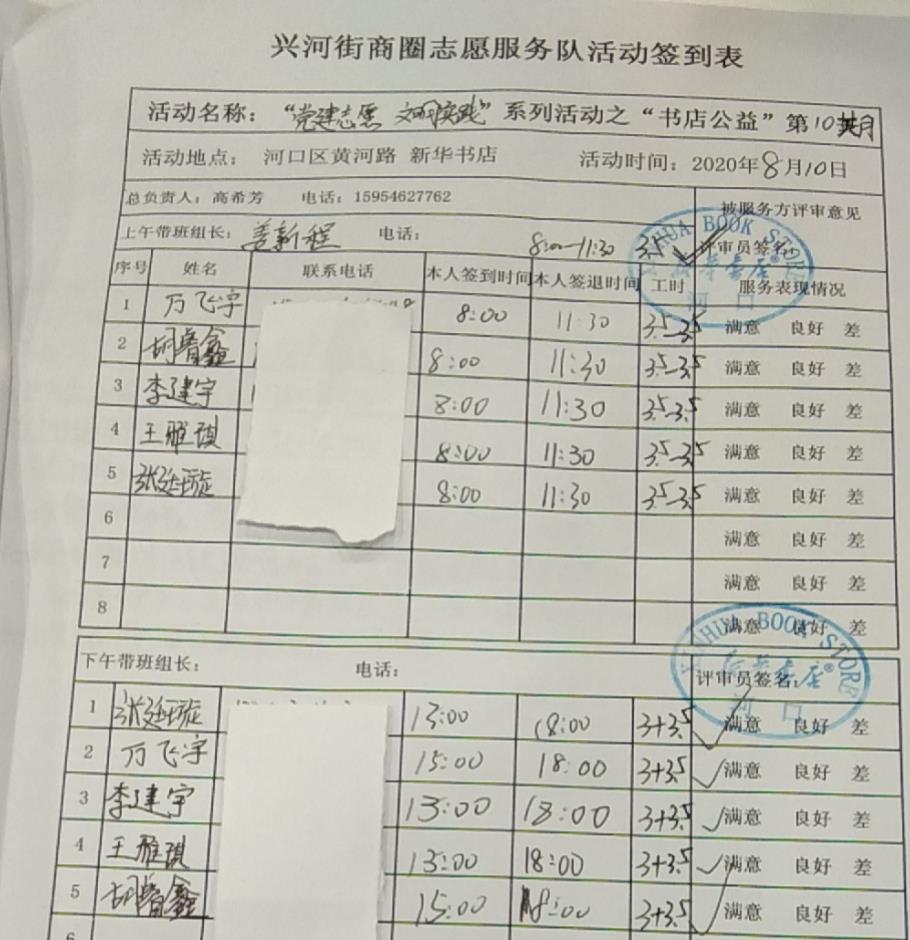 兴河街商圈志愿服务队活动签到表
活动名称：“党建志愿 文明实践”系列活动之“书店公益”第10期
活动地点： 河口区黄河路 新华书店 活动时间：2020年8月10日
总负责人：高希芳 电话：15954627762 被服务方评审意见
上午带班组长：姜新程 电话： 8:00-11:30 3.5 评审员签名：
XINHUA BOOK STORE
新华书店®
河口
序号 姓名 联系电话 本人签到时间 本人签退时间 工时 服务表现情况
1 万飞宇 8:00 11:30 3.5-3.5 满意 良好 差
2 胡睿鑫 8:00 11:30 3.5-3.5 满意 良好 差
3 李建宇 8:00 11:30 3.5-3.5 满意 良好 差
4 王雅琪 8:00 11:30 3.5-3.5 满意 良好 差
5 张廷璇 8:00 11:30 3.5-3.5 满意 良好 差
6 满意 良好 差
7 满意 良好 差
8 满意 良好 差
XINHUA BOOK STORE
新华书店®
河口
下午带班组长： 电话： 评审员签名：
1 张廷璇 15:00 18:00 3+3.5 满意 良好 差
2 万飞宇 15:00 18:00 3+3.5 满意 良好 差
3 李建宇 15:00 18:00 3+3.5 满意 良好 差
4 王雅琪 15:00 18:00 3+3.5 满意 良好 差
5 胡睿鑫 15:00 18:00 3+3.5 满意 良好 差
6